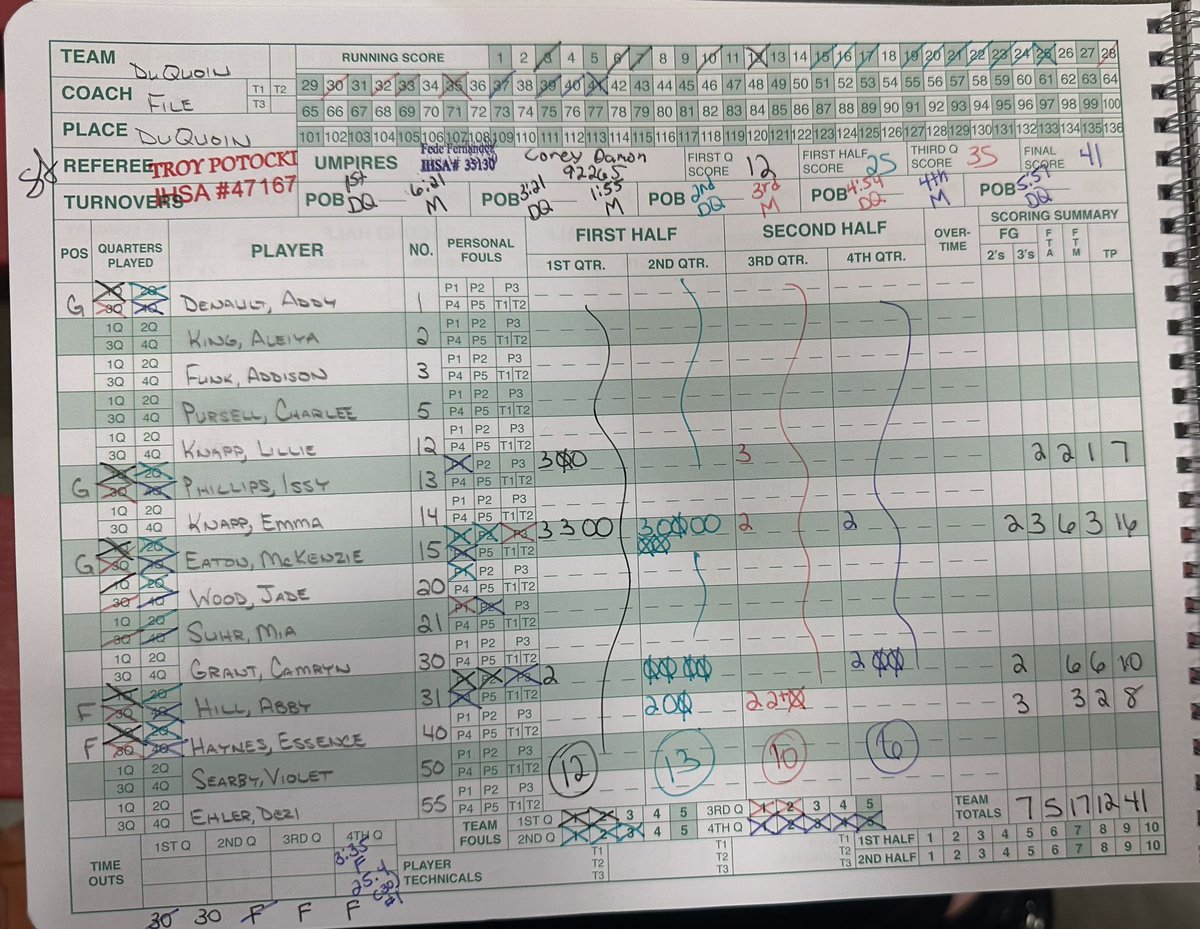 TEAM DUQUOIN RUNNING SCORE 1 2 3 4 5 6 7 8 9 10 11 12 13 14 15 16 17 18 19 20 21 22 23 24 25 26 27 28
COACH FILE T1 T2 T3 29 30 31 32 33 34 35 36 37 38 39 40 41 42 43 44 45 46 47 48 49 50 51 52 53 54 55 56 57 58 59 60 61 62 63 64
65 66 67 68 69 70 71 72 73 74 75 76 77 78 79 80 81 82 83 84 85 86 87 88 89 90 91 92 93 94 95 96 97 98 99 100
PLACE DUQUOIN 101 102 103 104 105 106 107 108 109 110 111 112 113 114 115 116 117 118 119 120 121 122 123 124 125 126 127 128 129 130 131 132 133 134 135 136
REFEREE TROY POTOCKI IHSA #47167 UMPIRES Fede Fernandez IHSA# 35130 Corey Damon 92265 FIRST Q SCORE 12 FIRST HALF SCORE 25 THIRD Q SCORE 35 FINAL SCORE 41
TURNOVERS POB 1st DQ 6:21 M POB 3:21 DQ 1:55 M POB 2nd DQ 3rd M POB 4:54 DQ 4th M POB 5:59 DQ
POS QUARTERS PLAYED PLAYER NO. PERSONAL FOULS FIRST HALF SECOND HALF OVER-TIME SCORING SUMMARY
1ST QTR. 2ND QTR. 3RD QTR. 4TH QTR. FG 2's 3's FTA FTM TP
G 1Q 2Q 3Q 4Q DENAULT, ADDY 1 P1 P2 P3 P4 P5 T1 T2
1Q 2Q 3Q 4Q KING, ALEIYA 2 P1 P2 P3 P4 P5 T1 T2
1Q 2Q 3Q 4Q FUNK, ADDISON 3 P1 P2 P3 P4 P5 T1 T2
1Q 2Q 3Q 4Q PURSELL, CHARLEE 5 P1 P2 P3 P4 P5 T1 T2
1Q 2Q 3Q 4Q KNAPP, LILLIE 12 P1 P2 P3 P4 P5 T1 T2
G 1Q 2Q 3Q 4Q PHILLIPS, ISSY 13 P1 P2 P3 P4 P5 T1 T2 3 0 0 3 2 2 1 7
1Q 2Q 3Q 4Q KNAPP, EMMA 14 P1 P2 P3 P4 P5 T1 T2
G 1Q 2Q 3Q 4Q EATON, MCKENZIE 15 P1 P2 P3 P4 P5 T1 T2 3 3 0 0 3 0 0 0 0 0 0 2 2 2 3 6 3 16
1Q 2Q 3Q 4Q WOOD, JADE 20 P1 P2 P3 P4 P5 T1 T2
1Q 2Q 3Q 4Q SUHR, MIA 21 P1 P2 P3 P4 P5 T1 T2
1Q 2Q 3Q 4Q GRANT, CAMRYN 30 P1 P2 P3 P4 P5 T1 T2
F 1Q 2Q 3Q 4Q HILL, ABBY 31 P1 P2 P3 P4 P5 T1 T2 2 0 0 0 0 2 0 0 2 6 6 10
F 1Q 2Q 3Q 4Q HAYNES, ESSENCE 40 P1 P2 P3 P4 P5 T1 T2 2 0 0 2 2 + 0 3 3 2 8
1Q 2Q 3Q 4Q SEARBY, VIOLET 50 P1 P2 P3 P4 P5 T1 T2 12 13 10 6
1Q 2Q 3Q 4Q EHLER, DEZI 55 P1 P2 P3 P4 P5 T1 T2
TEAM FOULS 1ST Q 1 2 3 4 5 3RD Q 1 2 3 4 5 TEAM TOTALS 7 5 17 12 41
2ND Q 1 2 3 4 5 4TH Q 1 2 3 4 5 T1 T2 T3 1ST HALF 1 2 3 4 5 6 7 8 9 10
2ND HALF 1 2 3 4 5 6 7 8 9 10
TIME OUTS 1ST Q 2ND Q 3RD Q 4TH Q 3:35 F PLAYER TECHNICALS T1 T2 T3 T1 T2 T3
30 30 F F F